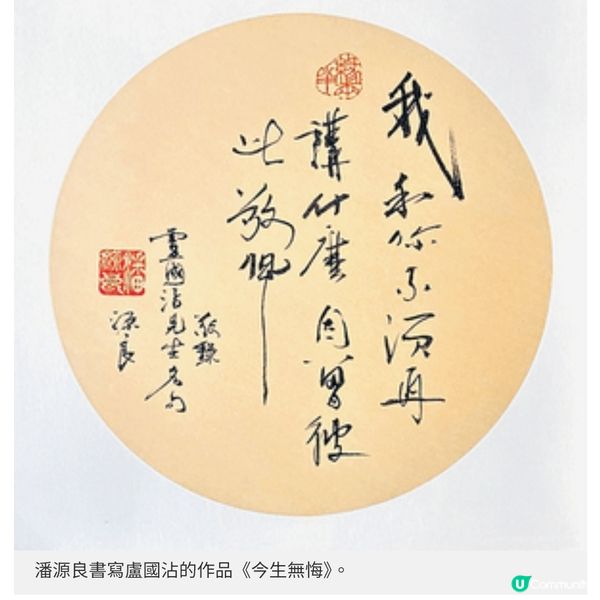 我和你不須再
講什麼因曾彼
此敬佩
敬錄
盧國沾先生名句
源良
潘源良書寫盧國沾的作品《今生無悔》。